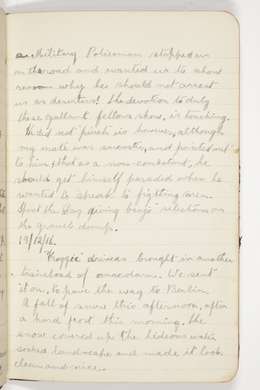 a Military Policeman stopped us
on the road and wanted us to show
reason why he should not arrest
us as deserters! The devotion to duty
these gallant fellows show, is touching.
He did not finish us however, although
my mate was sarcastic, and pointed out
to him that as a non-combatant, he
should get himself paraded when he
wanted to speak to fighting men.
Spent the day giving banjo selections on
the gravel dump.
19/12/16.
"Froggie" drivers brought in another
trainload of macadam. We sent
it on, to pave the way to Berlin.
A fall of snow this afternoon, after
a hard frost this morning. The
snow covered up the hideous water
soaked landscape and made it look
clean and nice.